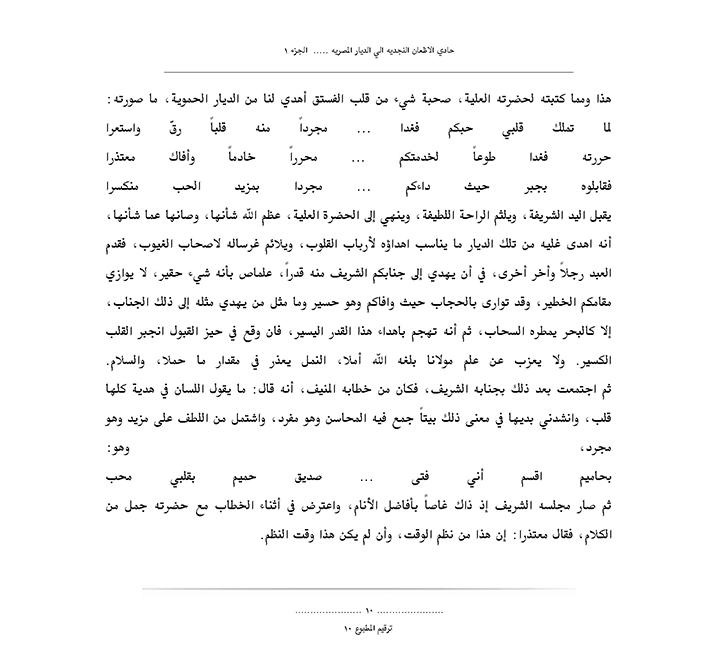 حادي الاظعان النجديه الي الديار المصريه ..... الجزء ١
هذا ومما كتبته لحضرته العلية، صحبة شيء من قلب الفستق أهدي لنا من الديار الحموية، ما صورته:
لما تملك قلبي حبكم فغدا ... مجرداً منه قلباً رقّ واستعرا
حررته فغدا طوعاً لخدمتكم ... محرراً خادماً وأفاك معتذرا
فقابلوه بجبر حيث داءكم ... مجردا بمزيد الحب منكسرا
يقبل اليد الشريفة، ويلثم الراحة اللطيفة، وينهي إلى الحضرة العلية، عظم الله شأنها، وصانها عما شأنها،
أنه اهدى غليه من تلك الديار ما يناسب اهداؤه لأرباب القلوب، ويلائم غرساله لاصحاب الغيوب، فقدم
العبد رجلاً وأخر أخرى، في أن يهدي إلى جنابكم الشريف منه قدراً، علماص بأنه شيء حقير، لا يوازي
مقامكم الخطير، وقد توارى بالحجاب حيث وافاكم وهو حسير وما مثل من يهدي مثله إلى ذلك الجناب،
إلا كالبحر يمطره السحاب، ثم أنه تهجم باهداء هذا القدر اليسير، فان وقع في حيز القبول انجبر القلب
الكسير. ولا يعزب عن علم مولانا بلغه الله أملا، النمل يعذر في مقدار ما حملا، والسلام.
ثم اجتمعت بعد ذلك بجنابه الشريف، فكان من خطابه المنيف، أنه قال: ما يقول اللسان في هدية كلها
قلب، وانشدني بديها في معنى ذلك بيتاً جمع فيه المحاسن وهو مفرد، واشتمل من اللطف على مزيد وهو
مجرد، وهو:
بحاميم اقسم أني فتى ... صديق حميم بقلبي محب
ثم صار مجلسه الشريف إذ ذاك غاصاً بأفاضل الأنام، واعترض في أثناء الخطاب مع حضرته جمل من
الكلام، فقال معتذرا: إن هذا من نظم الوقت، وأن لم يكن هذا وقت النظم.
...................... ١٠ ......................
ترقيم المطبوع ١٠